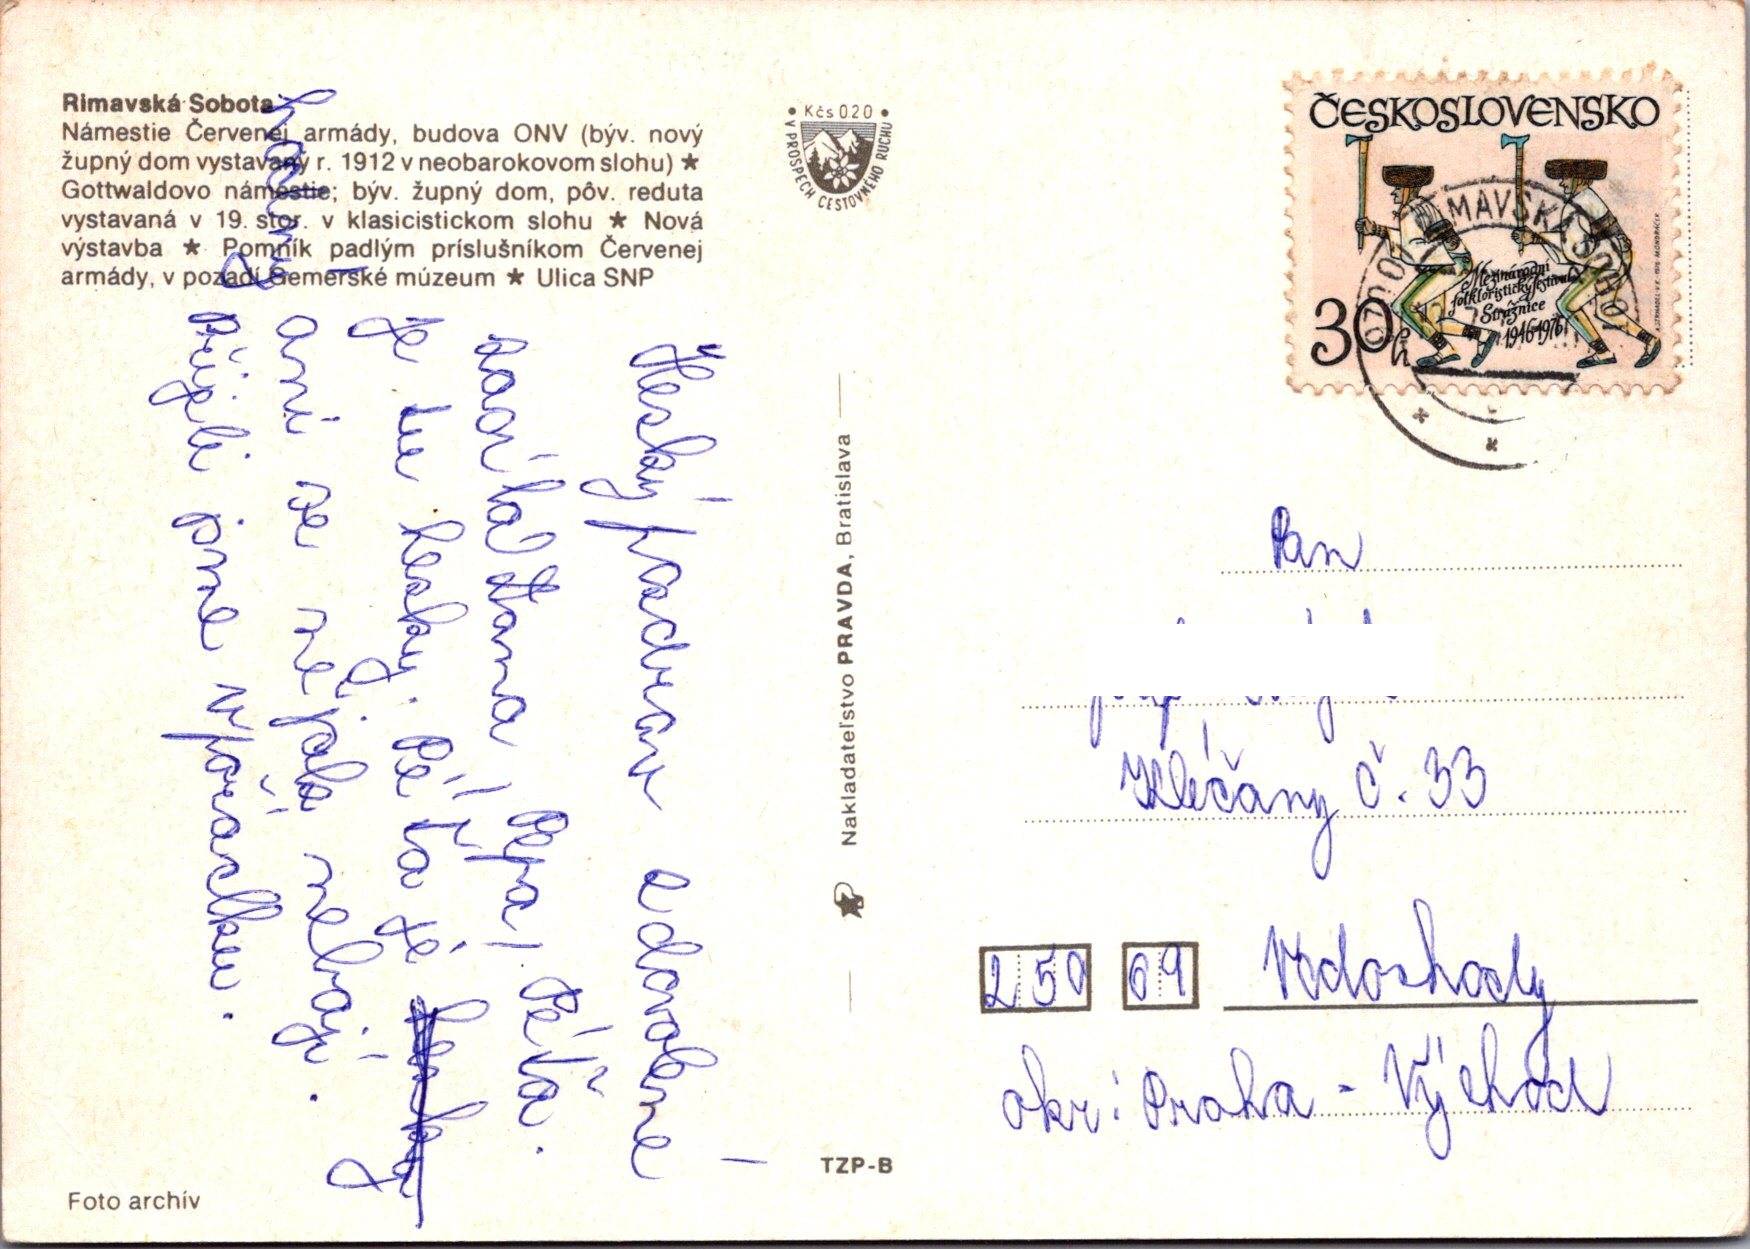 Rimavská Sobota
Námestie Červenej armády, budova ONV (býv. nový
župný dom vystavaný r. 1912 v neobarokovom slohu) ★
Gottwaldovo námestie; býv. župný dom, pôv. reduta
vystavaná v 19. stor. v klasicistickom slohu ★ Nová
výstavba ★ Pomník padlým príslušníkom Červenej
armády, v pozadí Gemerské múzeum ★ Ulica SNP
Heský pozdrav z dovolené
Dana, Pepa, Péťa.
Je tu hesky. Péťa je
hodný
ani se nějak nebojí.
jsme v pořádku.
Foto archív
• Kčs 0.20 •
V PROSPECH CESTOVNÉHO RUCHU
Nakladateľstvo PRAVDA, Bratislava
TZP-B
ČESKOSLOVENSKO
Mezinárodní
folkloristický festival
Strážnice
1946-1976
30 h
RIMAVSKÁ SOBOTA
Pan
Klíčany č. 33
250 69 Vodochody
okr: Praha - Východ